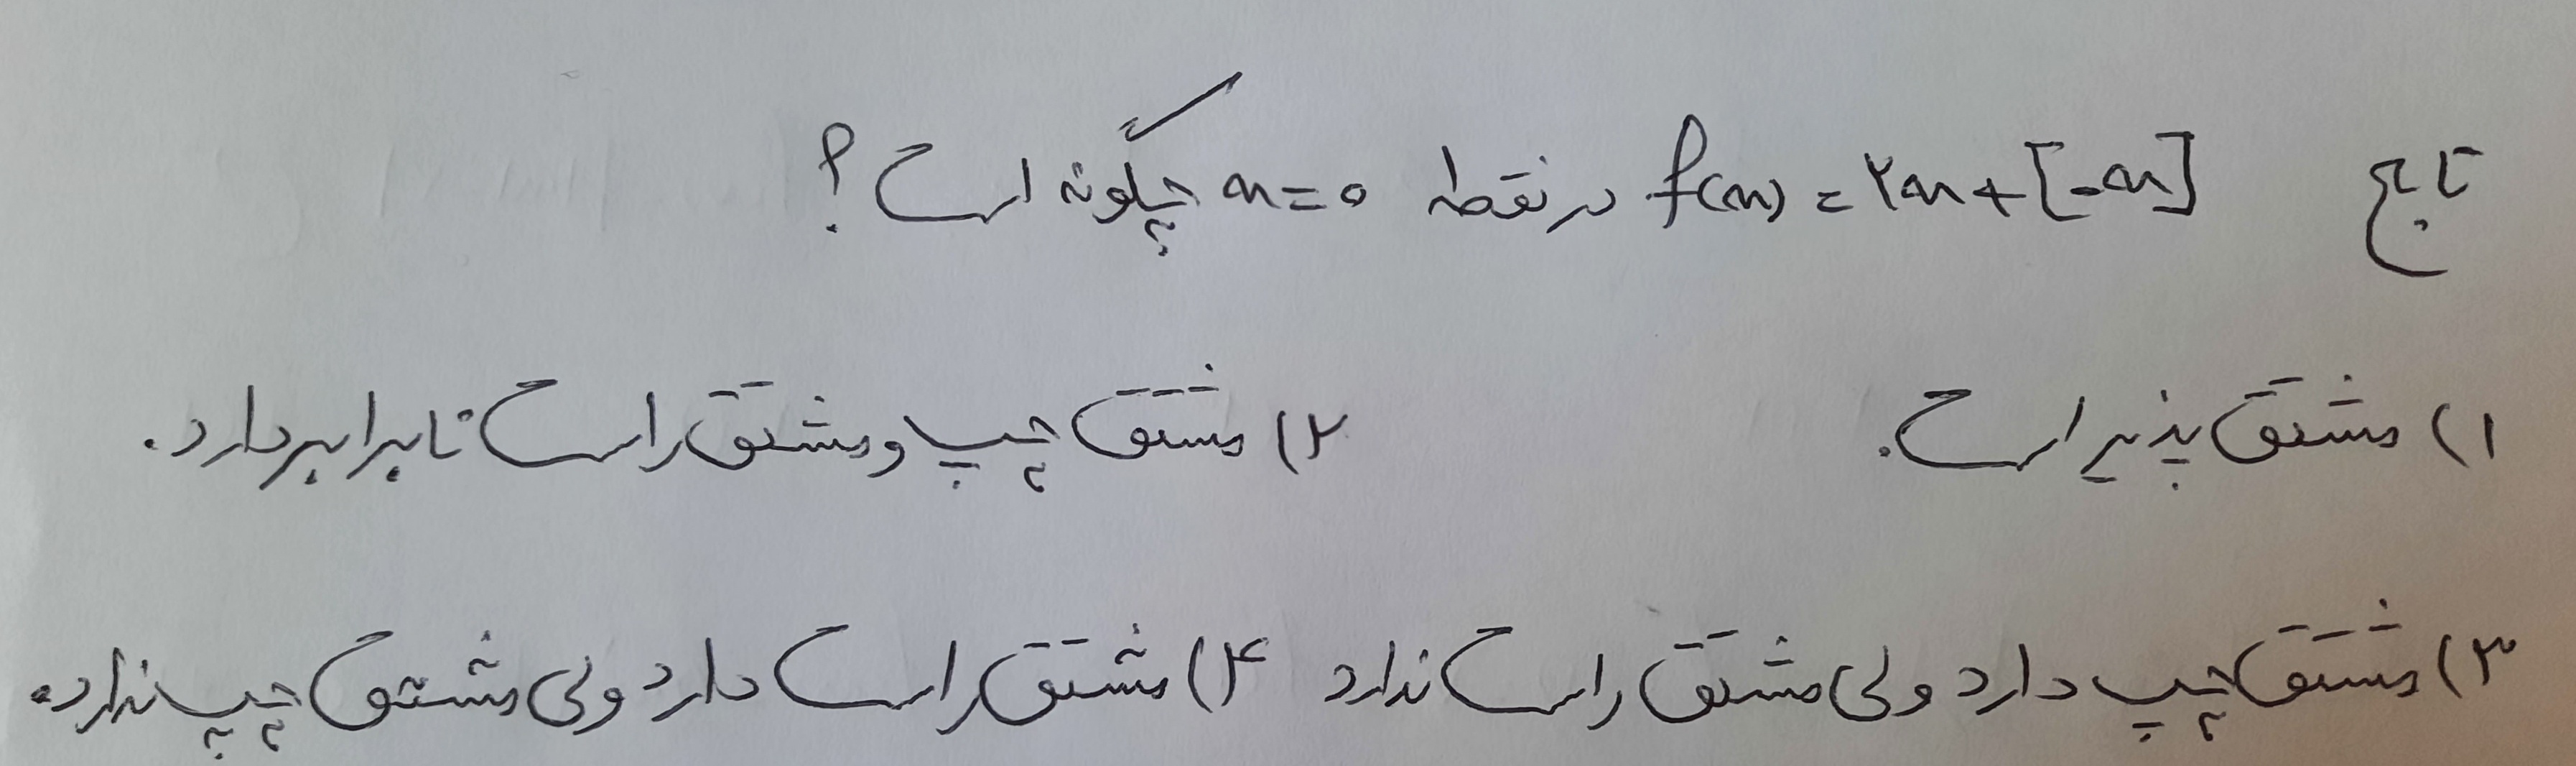 تابع f(x) = ۲x + [-x] در نقطه x = ۰ چگونه است ؟
۱) مشتق پذیر است. ۲) مشتق چپ و مشتق راست نابرابر دارد.
۳) مشتق چپ دارد ولی مشتق راست ندارد ۴) مشتق راست دارد ولی مشتق چپ ندارد.